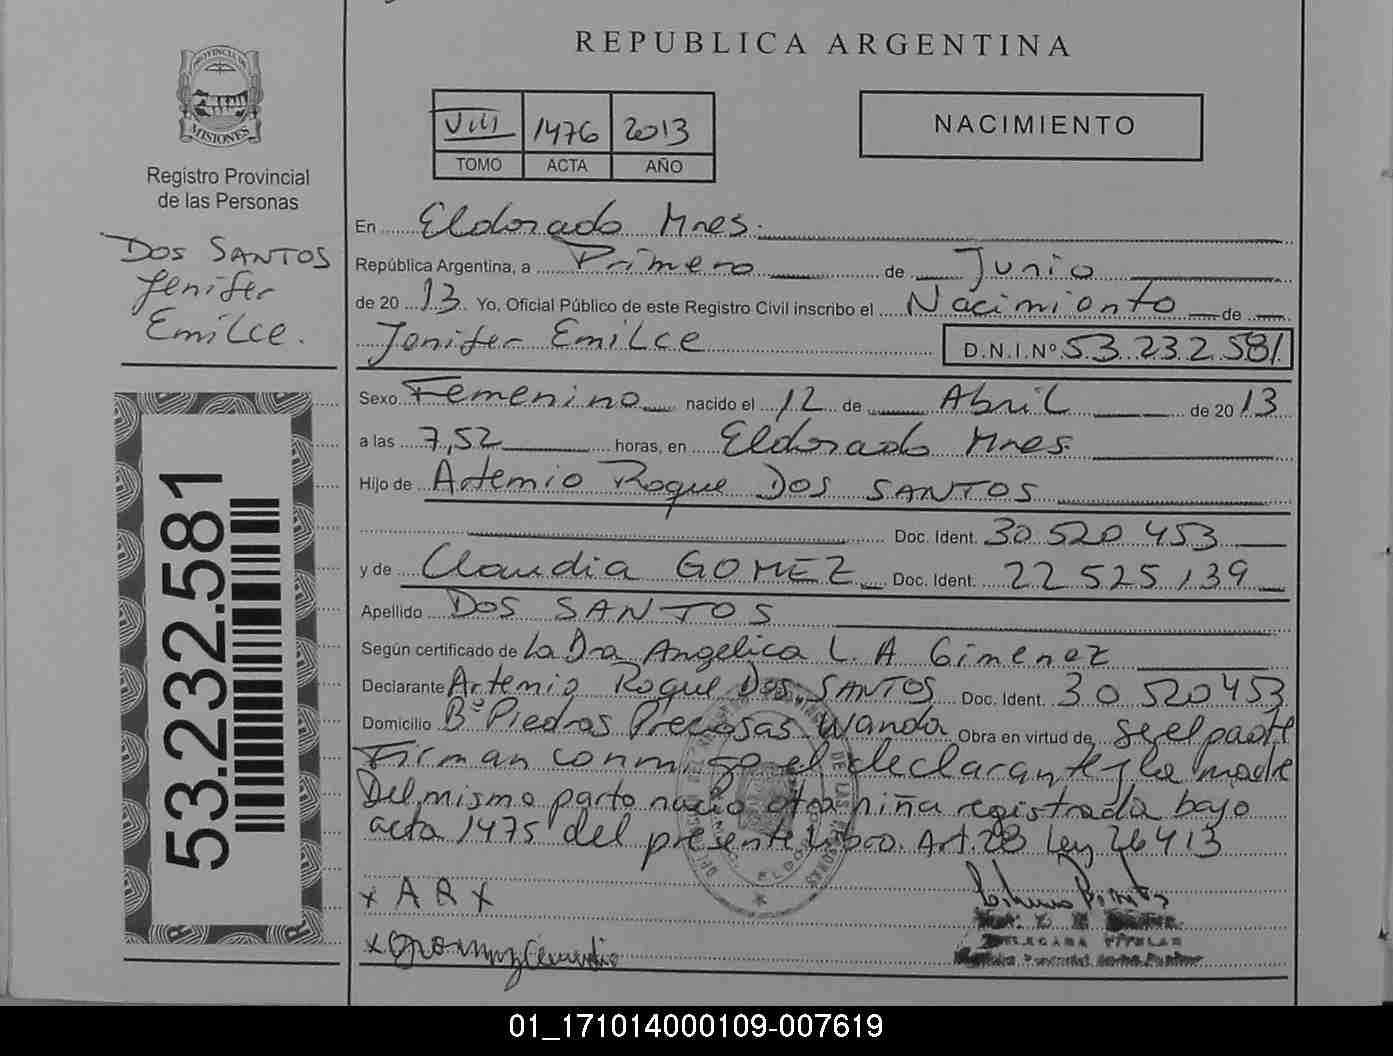 REPUBLICA ARGENTINA
PROVINCIA DE
MISIONES
Registro Provincial
de las Personas
DOS SANTOS
Jenifer
Emilce.
53.232.581
VIII 1476 2013
TOMO ACTA AÑO
NACIMIENTO
En Eldorado Mnes.
República Argentina, a Primero de Junio
de 20 13. Yo, Oficial Público de este Registro Civil inscribo el Nacimiento de
Jenifer Emilce D.N.I.Nº 53.232.581
Sexo Femenino nacido el 12 de Abril de 20 13
a las 7,52 horas, en Eldorado Mnes.
Hijo de Artemio Roque Dos SANTOS
Doc. Ident. 30 520 453
y de Claudia GOMEZ Doc. Ident. 22 525 139
Apellido DOS SANTOS
Según certificado de La Dra Angelica L. A Gimenez
Declarante Artemio Roque Dos SANTOS Doc. Ident. 30 520453
Domicilio Bº Piedras Preciosas Wanda Obra en virtud de ser el padre
Firman conmigo el declarante y la madre
Del mismo parto nacio otra niña registrada bajo
acta 1475 del presente Libro. Art. 28 Ley 26413
x A R x
DELEGADA TITULAR
01_171014000109-007619